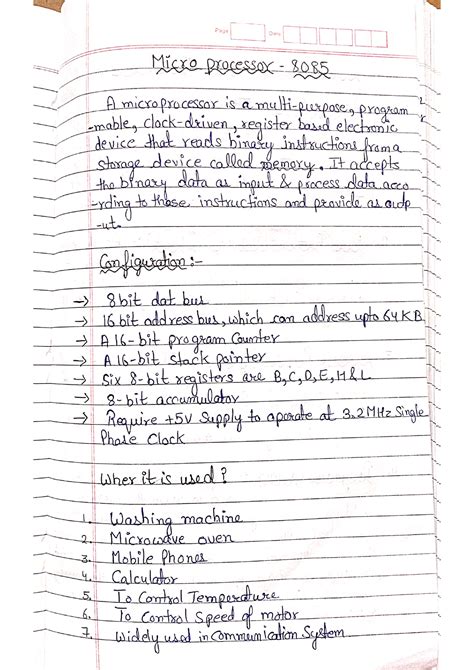 Page Date
Micro processor - 8085
A microprocessor is a multi-purpose, program
-mable, clock-driven, register based electronic
device that reads binary instructions from a
storage device called memory. It accepts
the binary data as input & process data acco
-rding to those instructions and provide as outp
-ut.
Configuration :-
→ 8 bit dat bus
→ 16 bit address bus, which can address upto 64 KB
→ A 16-bit program Counter
→ A 16-bit stack pointer
→ Six 8-bit registers are B, C, D, E, H & L
→ 8-bit accumulator
→ Require +5V Supply to oporate at 3.2 MHz Single
Phase Clock
Wher it is used ?
1. Washing machine
2. Microwave oven
3. Mobile Phones
4. Calculator
5. To Control Temperature
6. To Control Speed of motor
7. Widely used in Communication System